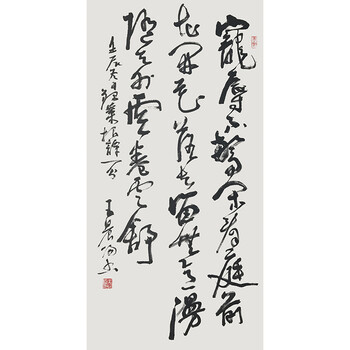 寵辱不驚闲看庭前
花开花落去留無意漫
随天外雲卷云舒
壬辰冬月 菜根譚一句
王晨 书